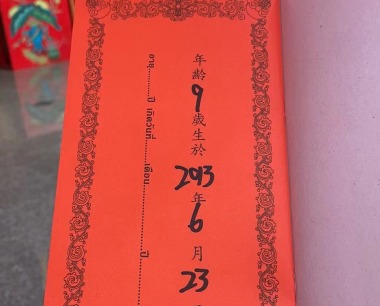 年齡9歲生於2013年6月23
อายุ..........ปี เกิดวันที่..............เดือน..............ปี